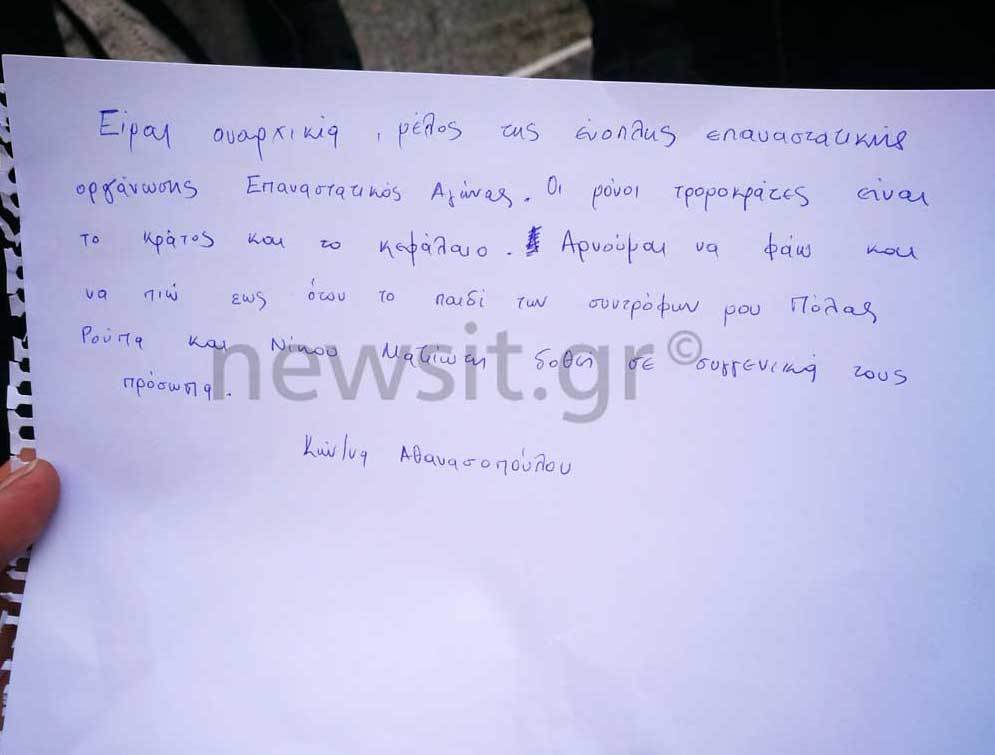 Είμαι αναρχικιά, μέλος της ένοπλης επαναστατικής
οργάνωσης Επαναστατικός Αγώνας. Οι μόνοι τρομοκράτες είναι
το κράτος και το κεφάλαιο. Αρνούμαι να φάω και
να πιώ εως ότου το παιδί των συντρόφων μου Πόλας
Ρούπα και Νίκου Μαζιώτη δοθεί σε συγγενικά τους
πρόσωπα.
newsit.gr©
Κων/να Αθανασοπούλου